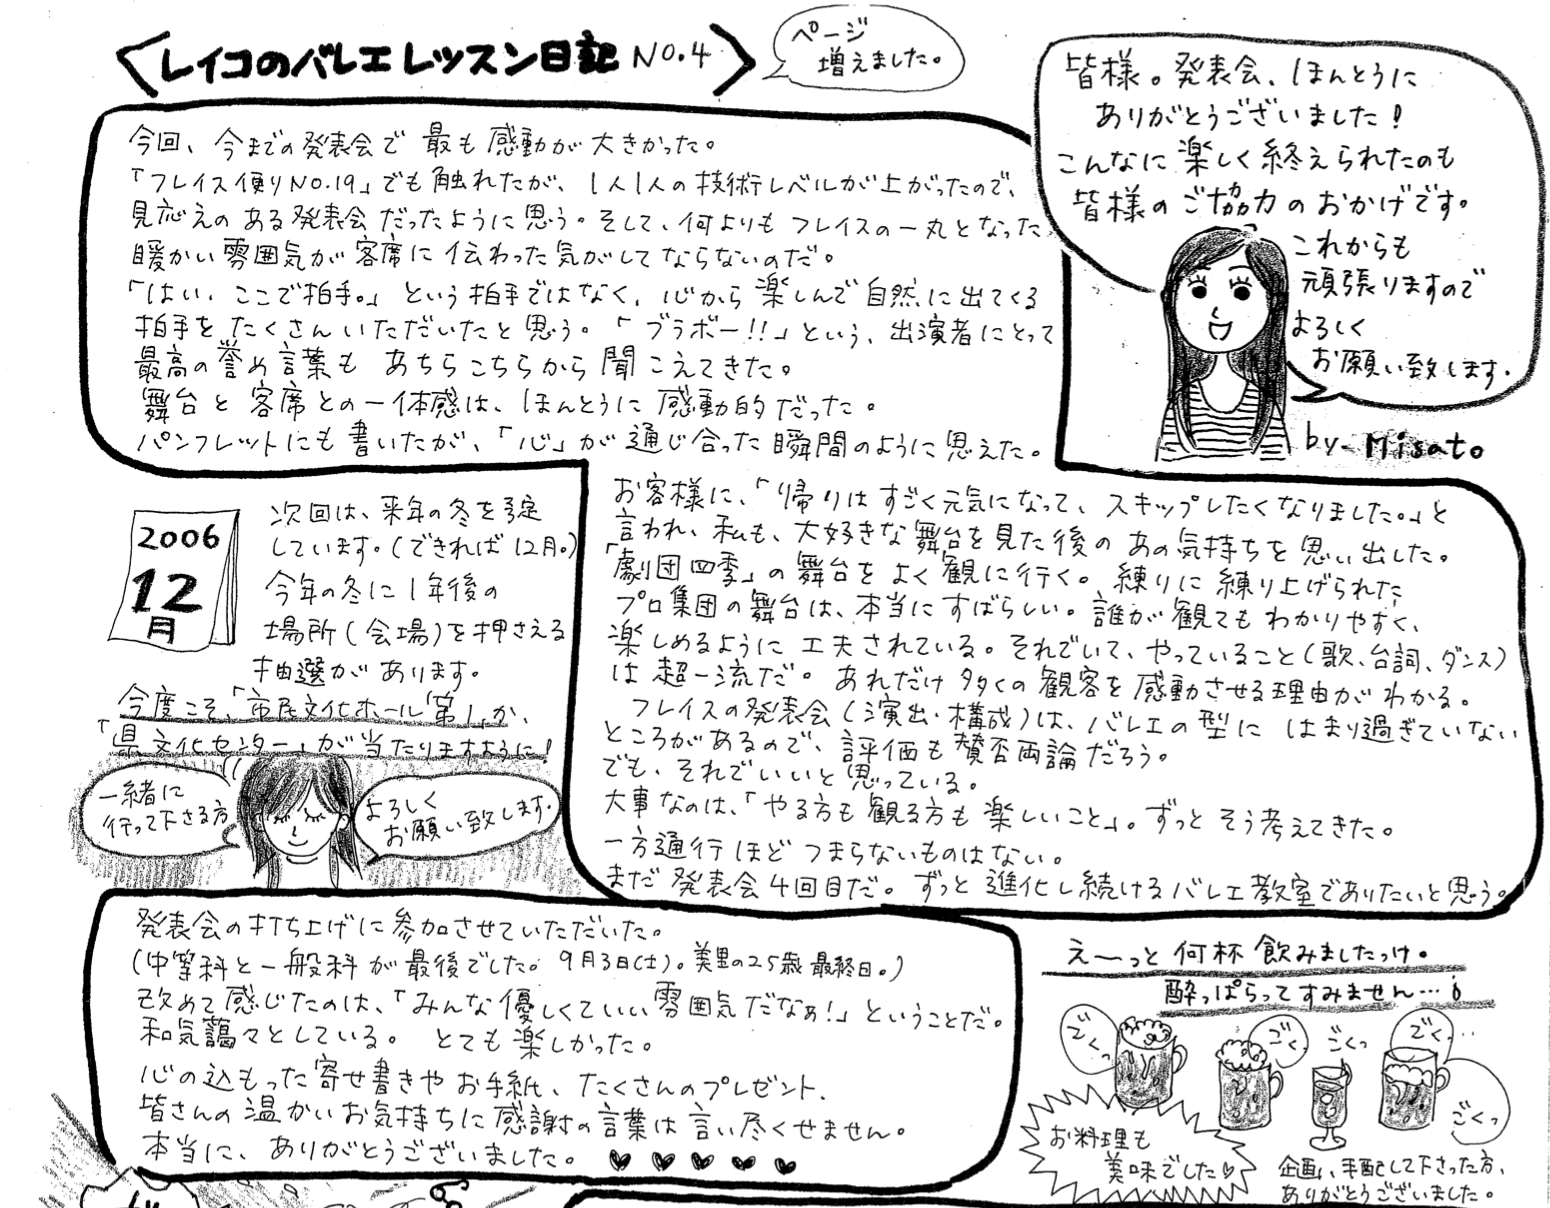 〈レイコのバレエレッスン日記 NO.4〉
ページ
増えました。
皆様。発表会、ほんとうに
ありがとうございました!
こんなに楽しく終えられたのも
皆様のご協力のおかげです。
これからも
頑張りますので
よろしく
お願い致します。
by Misato
今回、今までの発表会で最も感動が大きかった。
「フレイス便りNO.19」でも触れたが、1人1人の技術レベルが上がったので、
見応えのある発表会だったように思う。そして、何よりもフレイスの一丸となった
暖かい雰囲気が客席に伝わった気がしてならないのだ。
「はい、ここで拍手。」という拍手ではなく、心から楽しんで自然に出てくる
拍手をたくさんいただいたと思う。「ブラボー!!」という、出演者にとって
最高の誉め言葉もあちらこちらから聞こえてきた。
舞台と客席との一体感は、ほんとうに感動的だった。
パンフレットにも書いたが、「心」が通じ合った瞬間のように思えた。
お客様に、「帰りはすごく元気になって、スキップしたくなりました。」と
言われ、私も、大好きな舞台を見た後のあの気持ちを思い出した。
「劇団四季」の舞台をよく観に行く。練りに練り上げられた
プロ集団の舞台は、本当にすばらしい。誰が観てもわかりやすく、
楽しめるように工夫されている。それでいて、やっていること(歌、台詞、ダンス)
は超一流だ。あれだけ多くの観客を感動させる理由がわかる。
フレイスの発表会(演出・構成)は、バレエの型にはまり過ぎていない
ところがあるので、評価も賛否両論だろう。
でも、それでいいと思っている。
大事なのは、「やる方も観る方も楽しいこと」。ずっとそう考えてきた。
一方通行ほどつまらないものはない。
まだ発表会4回目だ。ずっと進化し続けるバレエ教室でありたいと思う。
2006
12
月
次回は、来年の冬を予定
しています。(できれば12月。)
今年の冬に1年後の
場所(会場)を押さえる
抽選があります。
今度こそ、「市民文化ホール第1」か、
「県文化センター」が当たりますように!
一緒に
行って下さる方
よろしく
お願い致します。
発表会の打ち上げに参加させていただいた。
(中等科と一般科が最後でした。9月3日(土)。美里の25歳最終日。)
改めて感じたのは、「みんな優しくていい雰囲気だなぁ!」ということだ。
和気藹々としている。とても楽しかった。
心の込もった寄せ書きやお手紙、たくさんのプレゼント、
皆さんの温かいお気持ちに感謝の言葉は言い尽くせません。
本当に、ありがとうございました。♥♥♥♥♥
え〜っと何杯飲みましたっけ。
酔っぱらってすみません…
ごくっ
ごく
ごくっ
ごくっ
ごくっ
お料理も
美味でした♡
企画、手配して下さった方、
ありがとうございました。